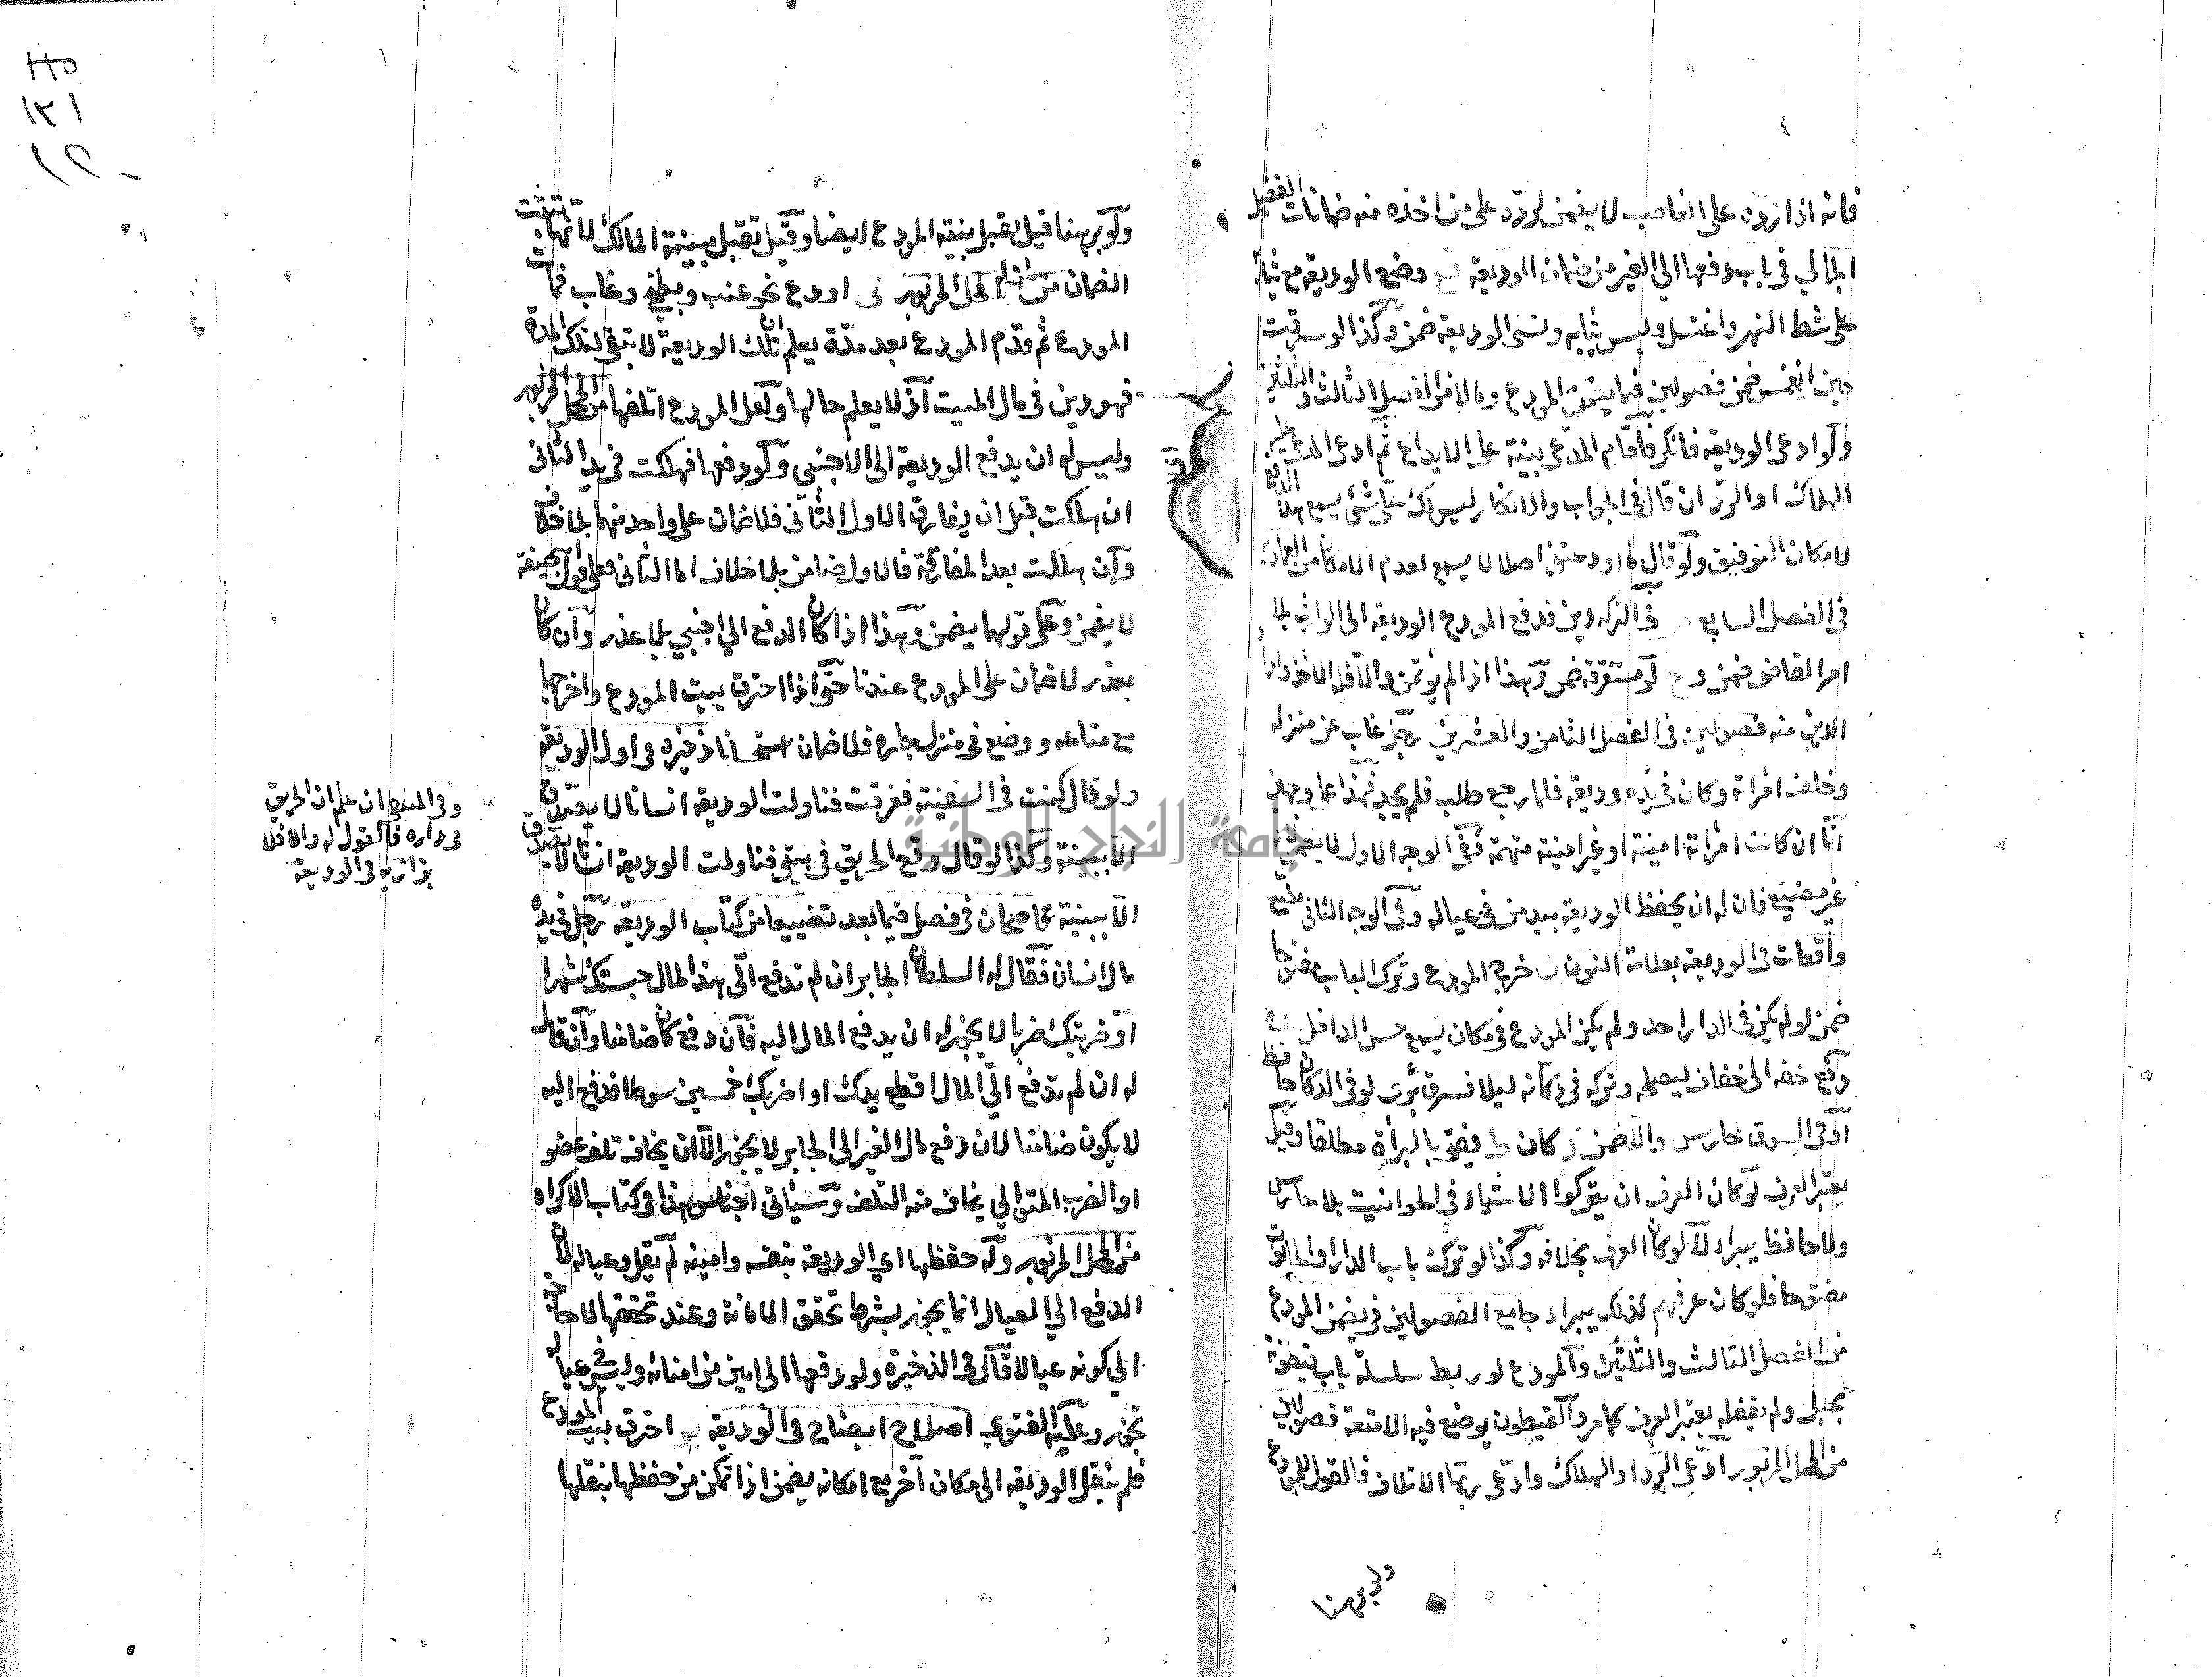 فانه اذا رده على الغاصب لا يضمن لرده على من اخذه منه ضمانات الفضيل
الجمالي في باب دفعها الى الغير من ضمان الوديعة وضع الوديعة مع ثيابه
على شط النهر واغتسل ولبس ثيابه ونسى الوديعة ضمن وكذا لو سرقت
حين انغمس ضمن فصولين فيما يضمن المودع وما لا من الفصل الثالث والثلثين
ولو ادعى الوديعة فانكر فاقام المدعى بينة على الايداع ثم ادعى المدعى عليه
الهلاك او الرد ان قال في الجواب والانكار ليس لك على شئ يسمع هذا الدفع
لامكان التوفيق ولو قال ما اودعتنى اصلا لا يسمع لعدم الامكان من العمادية
في الفصل السابع في التركة دين فدفع المودع الوديعة الى الوارث بلا
امر القاضي ضمن لو مستغرقة ضمن وهذا اذا لم يؤتمن والا فله الاخذ واداء
الدين منه فصولين في الفصل الثامن والعشرين رجل غاب عن منزله
وخلف امرأته وكان في يده وديعة فلما رجع طلب فلم يجد فهذا على وجهين
اما ان كانت امرأته امينة او غير امينة متهمة ففي الوجه الاول لا يضمن لانه
غير مضيع فان له ان يحفظ الوديعة بيد من في عياله وفي الوجه الثاني مضيع
واقعات في الوديعة بعلامة النون خرج المودع وترك الباب مفتوحا
ضمن لو لم يكن في الدار احد ولم يكن المودع في مكان يسمع حس الداخل
دفع خفه الى خفاف ليصلحه وتركه في دكانه ليلا فسرق برئ لو في الدكان حافظ
او في السوق حارس والا ضمن وكان ط يفتي بالبرأة مطلقا وقيل
يعتبر العرف لو كان العرف ان يتركوا الاشياء في الحوانيت بلا حارس
ولا حافظ يبراء لا لو كان العرف بخلافه وكذا لو ترك باب الدار والحانوت
مفتوحا فلو كان عرفهم كذلك يبراء جامع الفصولين في يضمن المودع
من الفصل الثالث والثلثين والمودع لو ربط سلسلة باب قيطونه
بحبل ولم يقفله يعتبر العرف كما مر والقيطون يوضع فيه الامتعة فصولين
من المحل المزبور ادعى الرد او الهلاك وادعى ربها الاتلاف فالقول للمودع
ولو برهنا
ولو برهنا قيل يقبل بينة المودع ايضا وقيل تقبل بينة المالك لانها تثبت
الضمان من المحل المزبور اودع نحو عنب وبطيخ وغاب فمات
المودع ثم قدم المودع بعد مدة يعلم ان تلك الوديعة لا تبقى لتلك المدة
فهو دين في مال الميت اذ لا يعلم حالها ولعل المودع اتلفها من المحل المزبور
وليس له ان يدفع الوديعة الى الاجنبي ولو دفعها فهلكت في يد الثاني
ان هلكت قبل ان يفارق الاول الثاني فلا ضمان على واحد منهما بلا خلاف
وان هلكت بعد المفارقة فالاول ضامن بلا خلاف اما الثاني فعلى قول ابي حنيفة
لا يضمن وعلى قولهما يضمن وهذا اذا كان الدفع الى اجنبي بلا عذر وان كان
بعذر لا ضمان على المودع عندنا حتى اذا احترق بيت المودع واخرجها
مع متاعه ووضع في منزل جاره فلا ضمان استحسانا ذخيره في اول الوديعة
ولو قال كنت في السفينة فغرقت فناولت الوديعة انسانا لا يصدق
الا ببينة وكذا لو قال وقع الحريق في بيتي فناولت الوديعة انسانا لا يصدق
الا ببينة قاضيخان في فصل فيما يعد تضييعا من كتاب الوديعة رجل في يده
مال انسان فقال له السلطان الجابر ان لم تدفع الى هذا المال حبستك شهرا
او ضربتك ضربا لا يجوز له ان يدفع المال اليه فان دفع كان ضامنا وان قال
له ان لم تدفع الي المال اقطع يدك او اضربك خمسين سوطا فدفع اليه
لا يكون ضامنا لان دفع مال الغير الى الجابر لا يجوز الا ان يخاف تلف عضو
او الضرب المتوالي يخاف منه التلف وسيأتي اجناس هذا في كتاب الاكراه
من المحل المزبور وله حفظها اي الوديعة بنفسه وامينه لم يقل وعياله لان
الدفع الى العيال انما يجوز بشرط تحقق الامانة وعند تحققها لا حاجة
الى كونه عيالا قال في الذخيرة ولو دفعها الى امين من امنائه وليس في عياله
يجوز وعليه الفتوى اصلاح ايضاح في الوديعة احترق بيت المودع
فلم ينقل الوديعة الى مكان آخر مع امكانه يضمن اذا تمكن من حفظها بنقلها
وفي المنتقى ان علم ان الحريق
في داره فالقول له والا فلا
بزازيه في الوديعة
جامعة النجاح الوطنية